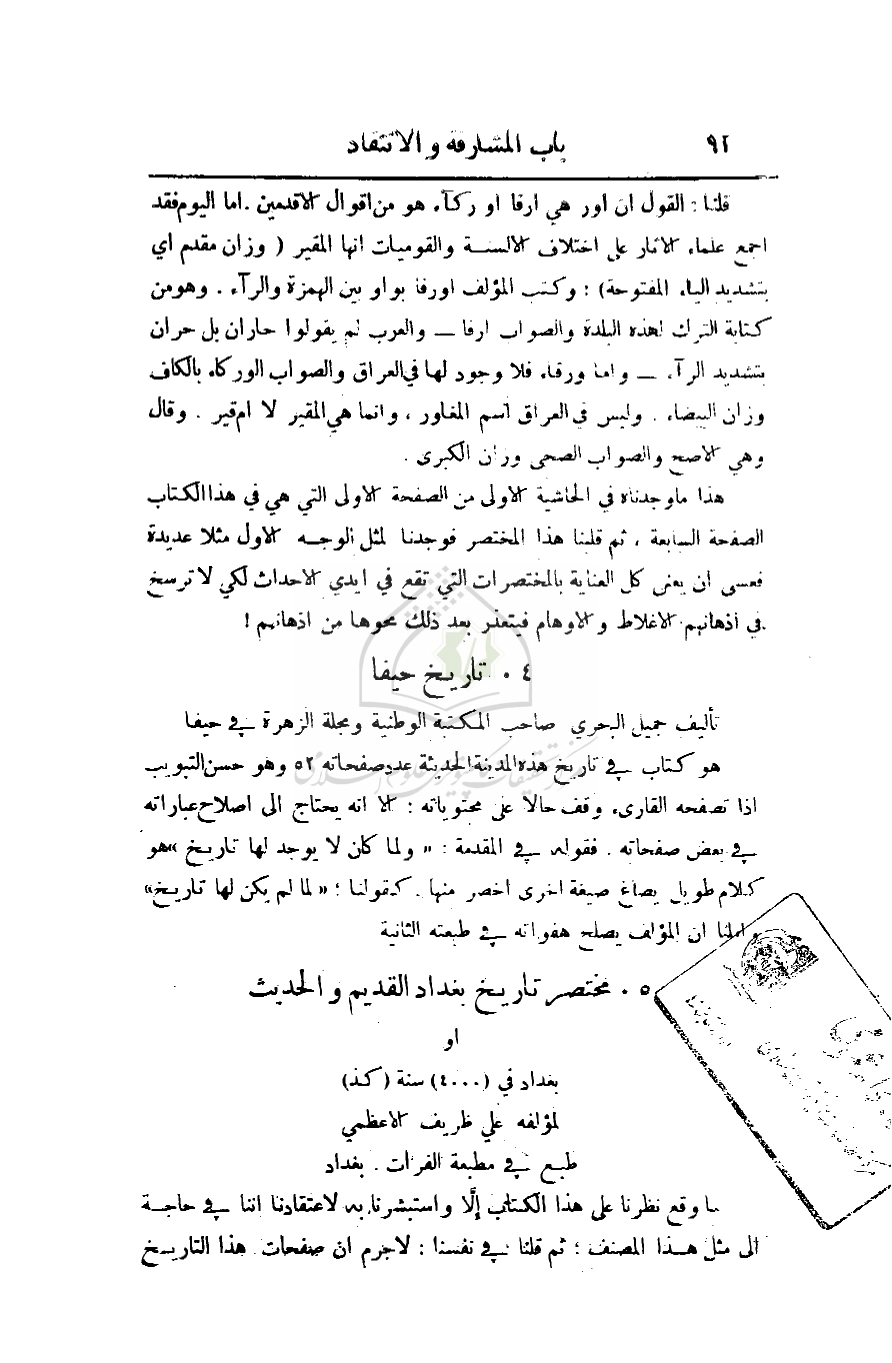 ٩٢ باب المشارفة والانتقاد
قلنا : القول ان اور هي ارفا او ركآء هو من اقوال الاقدمين . اما اليوم فقد
اجمع علماء الاثار على اختلاف الالسنة والقوميات انها المقير ( وزان مقدم اي
بتشديد الياء المفتوحة ) : وكتب المؤلف اورفا بواو بين الهمزة والرآء . وهو من
كتابة الترك لهذه البلدة والصواب ارفا — والعرب لم يقولوا حاران بل حران
بتشديد الرآء — واما ورقاء فلا وجود لها في العراق والصواب الوركاء بالكاف
وزان البيضاء . وليس في العراق اسم المغاور ، وانما هي المقير لا ام قير . وقال
وهي الاصح والصواب الصحى وزان الكبرى .
هذا ما وجدناه في الحاشية الاولى من الصفحة الاولى التي هي في هذا الكتاب
الصفحة السابعة ، ثم قلبنا هذا المختصر فوجدنا لمثل الوجه الاول مثلا عديدة
فعسى ان يعنى كل العناية بالمختصرات التي تقع في ايدي الاحداث لكي لا ترسخ
في اذهانهم الاغلاط والاوهام فيتعذر بعد ذلك محوها من اذهانهم !
٤ . تاريخ حيفا
تأليف جميل البحري صاحب المكتبة الوطنية ومجلة الزهرة في حيفا
هو كتاب في تاريخ هذه المدينة الحديثة عدد صفحاته ٥٢ وهو حسن التبويب
اذا تصفحه القارىء وقف حالا على محتوياته : الا انه يحتاج الى اصلاح عباراته
في بعض صفحاته . فقوله في المقدمة : « ولما كان لا يوجد لها تاريخ » هو
كلام طويل يصاغ صيغة اخرى اخصر منها . كقولنا : « لما لم يكن لها تاريخ »
واملنا ان المؤلف يصلح هفواته في طبعته الثانية
٥ . مختصر تاريخ بغداد القديم والحديث
او
بغداد في (٤٠٠٠) سنة (كذا)
لمؤلفه علي ظريف الاعظمي
طبع في مطبعة الفرات . بغداد
ما وقع نظرنا على هذا الكتاب إلّا واستبشرنا به لاعتقادنا اننا في حاجة
الى مثل هذا المصنف : ثم قلنا في نفسنا : لاجرم ان صفحات هذا التاريخ